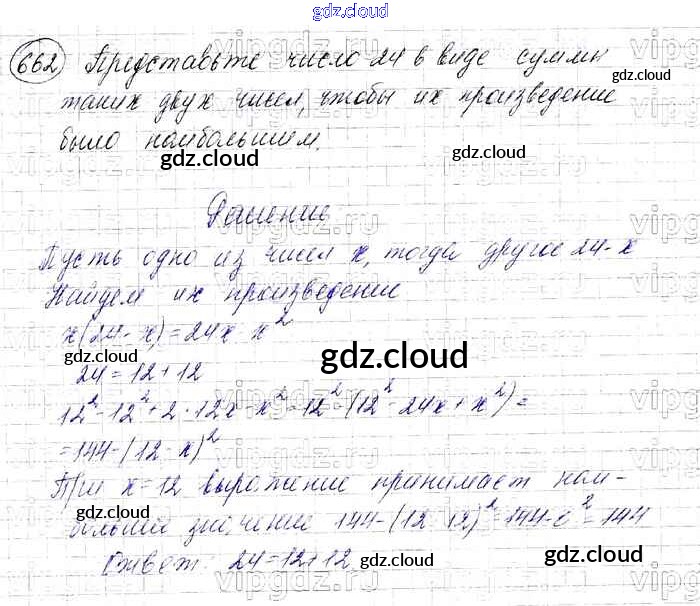 gdz.cloud
662 Представьте число 24 в виде суммы
таких двух чисел, чтобы их произведение
было наибольшим.
Решение
Пусть одно из чисел x, тогда другое 24-x
Найдем их произведение
x(24-x)=24x-x²
24=12+12
12²-12²+2·12x-x²=12²-(12²-24x+x²)=
=144-(12-x)²
При x=12 выражение принимает наи-
большее значение 144-(12-12)²=144-0²=144
Ответ: 24=12+12